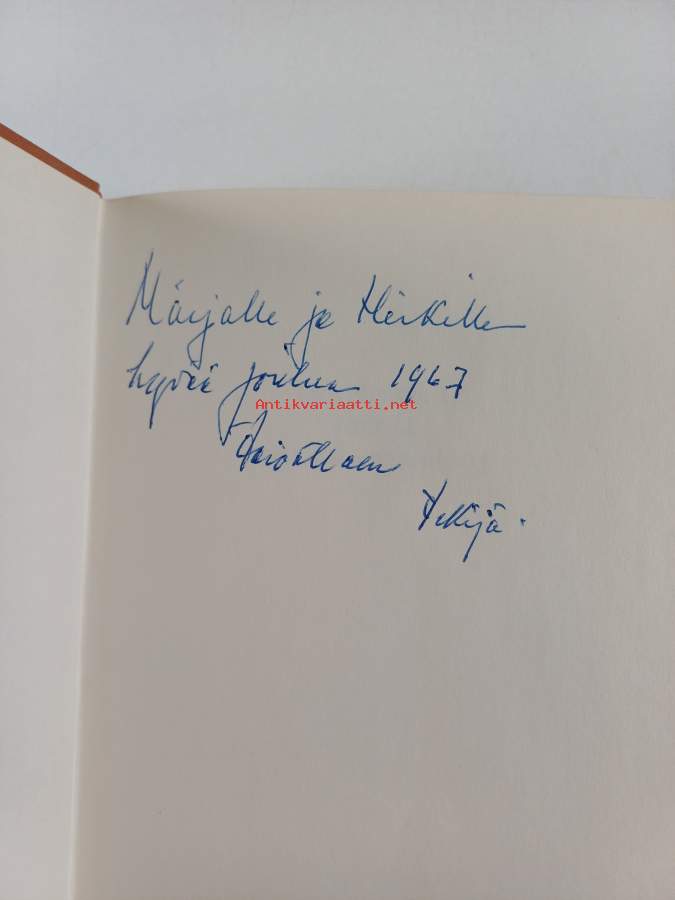 Marjalle ja Heikille
hyvää joulua 1967
Antikvariaatti.net
toivottaen
Tekijä.